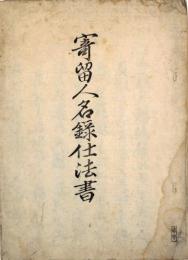 寄留人名録仕法書